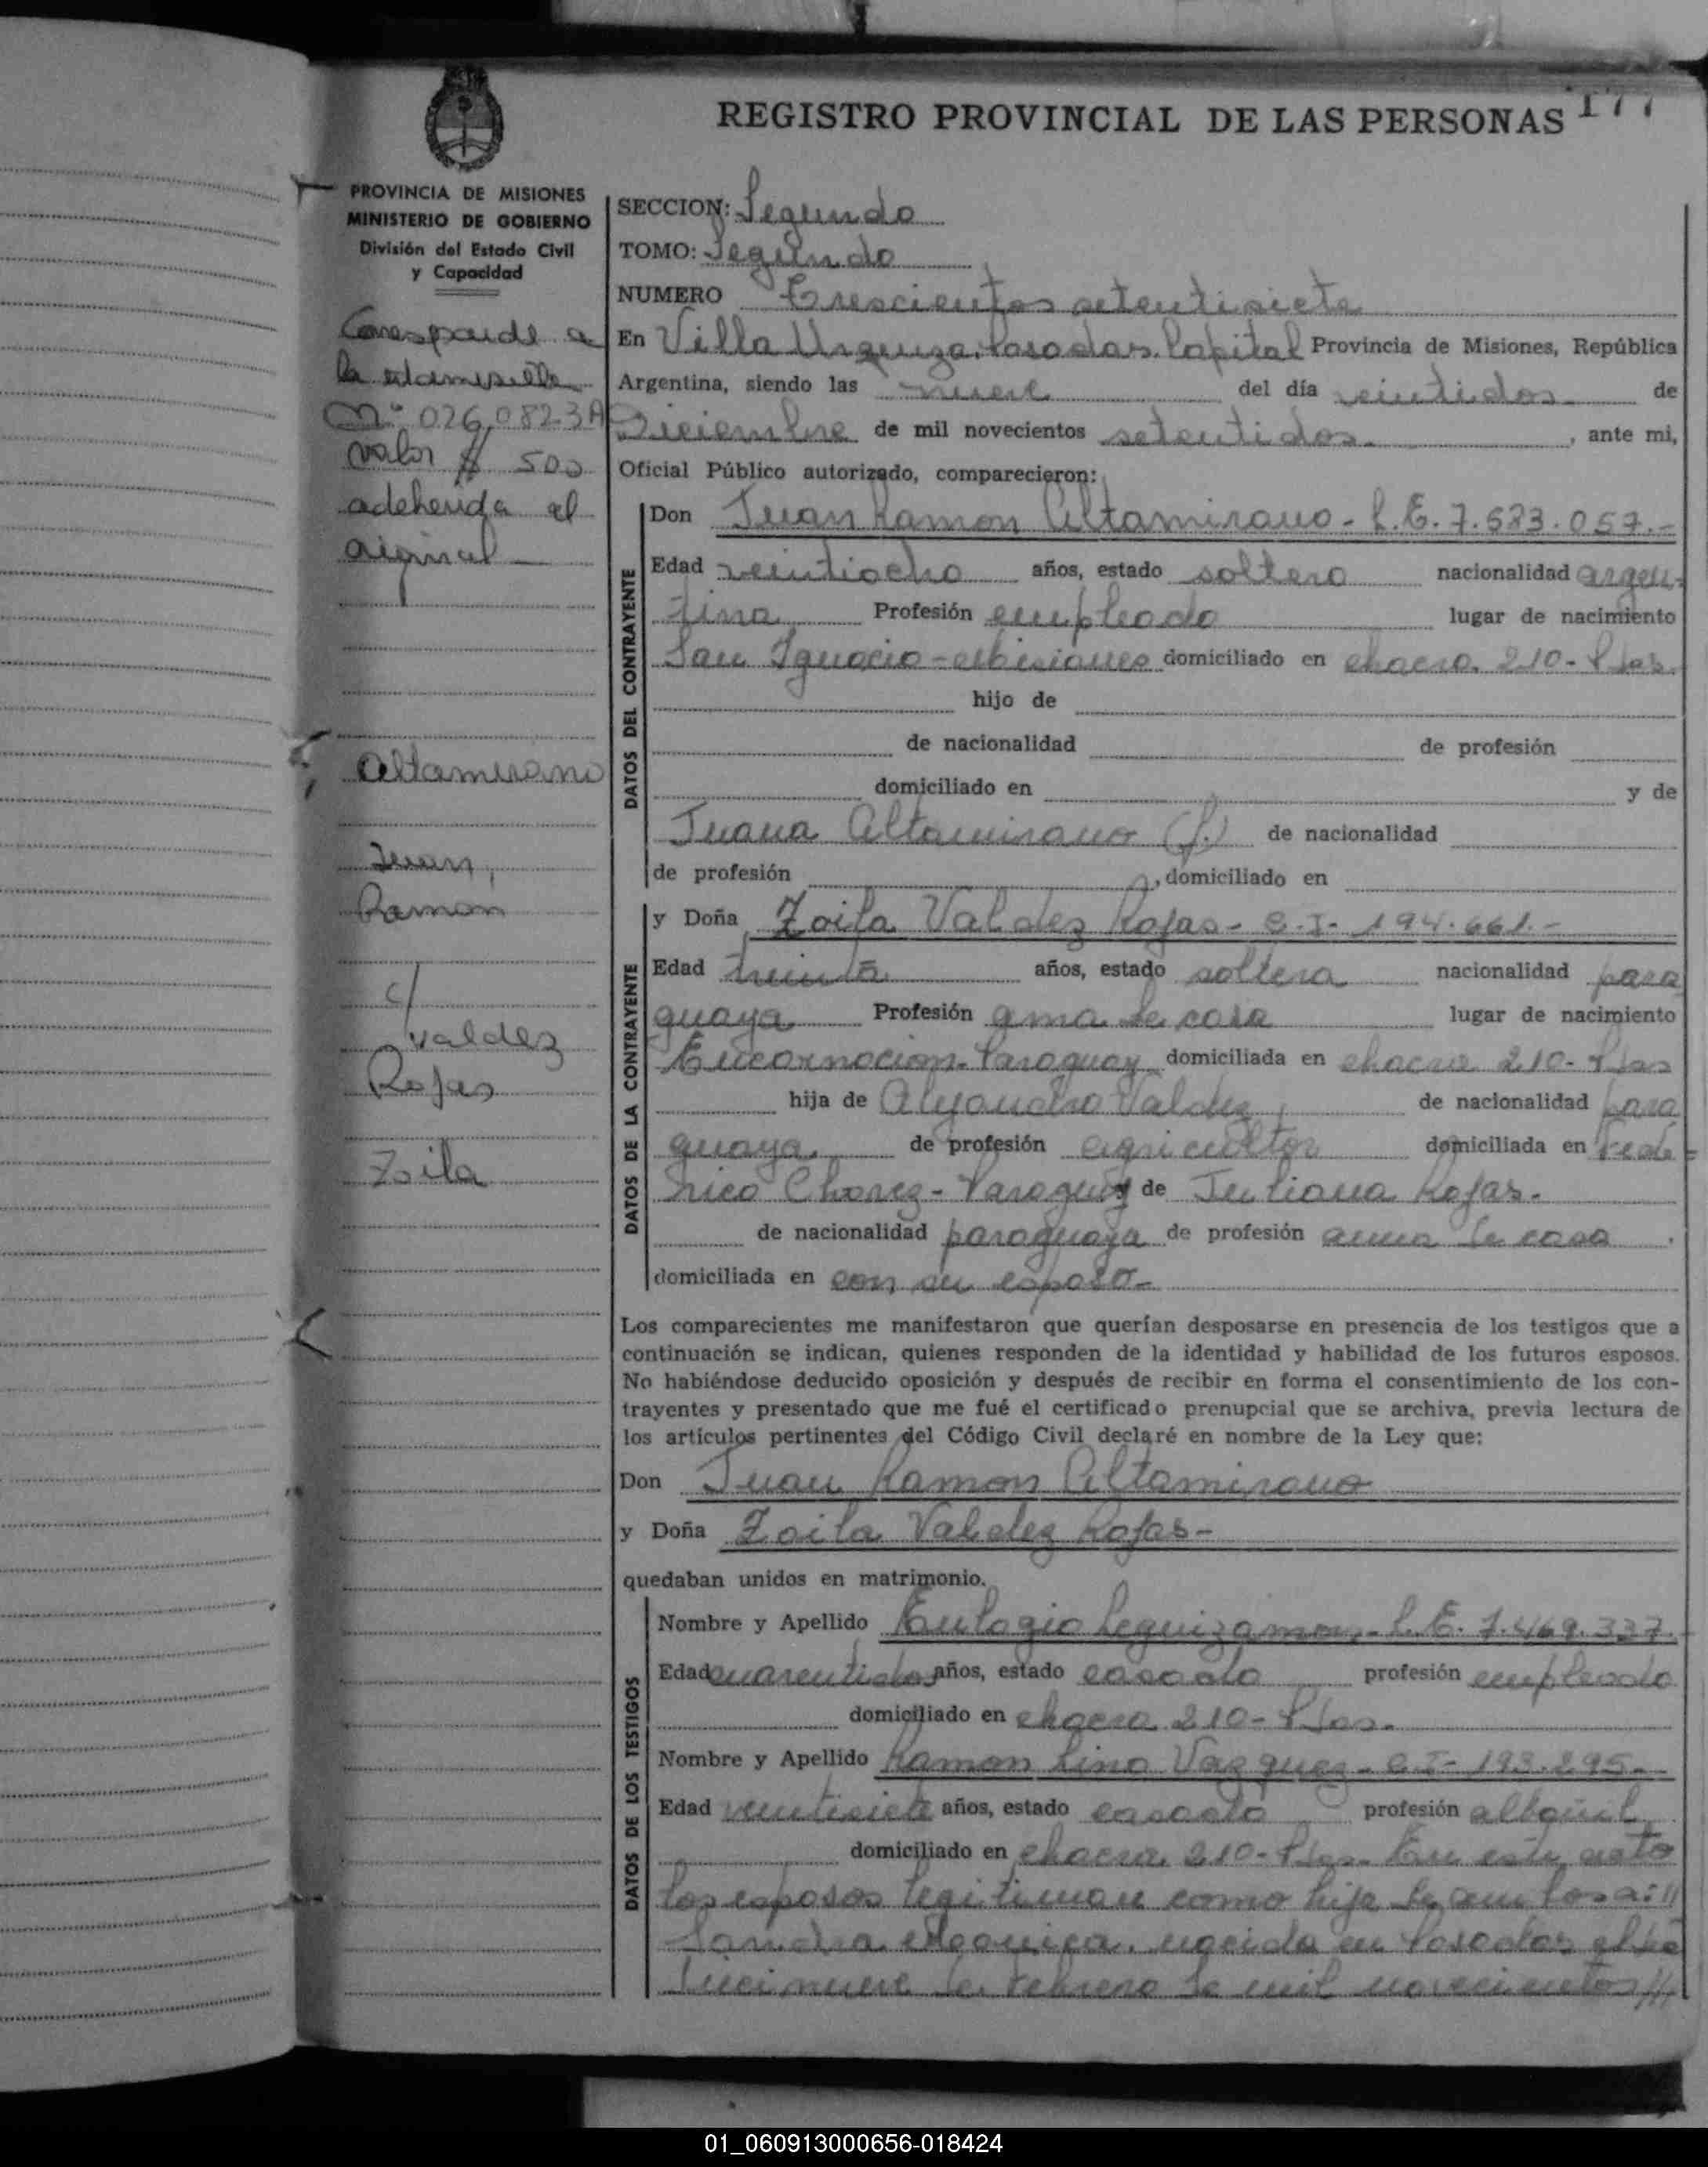 REGISTRO PROVINCIAL DE LAS PERSONAS 177
PROVINCIA DE MISIONES
MINISTERIO DE GOBIERNO
División del Estado Civil
y Capacidad
Corresponde a
la estampilla
Nº 0260823A
valor $ 500
adherida al
original
Altamirano
Juan,
Ramon
c/
Valdez
Rojas
Zoila
SECCION: Segundo
TOMO: Segundo
NUMERO Trescientos setentisiete
En Villa Urquiza, Posadas, Capital Provincia de Misiones, República
Argentina, siendo las nueve del día veintidos de
Diciembre de mil novecientos setentidos. , ante mi,
Oficial Público autorizado, comparecieron:
DATOS DEL CONTRAYENTE
Don Juan Ramon Altamirano - L.E. 7.583.057.-
Edad veintiocho años, estado soltero nacionalidad argen-
tina Profesión empleado lugar de nacimiento
San Ignacio - Misiones domiciliado en chacra 210 - Pdas.
hijo de
de nacionalidad de profesión
domiciliado en y de
Juana Altamirano (f.) de nacionalidad
de profesión , domiciliado en
DATOS DE LA CONTRAYENTE
y Doña Zoila Valdez Rojas - C.I. 194.661.-
Edad treinta años, estado soltera nacionalidad para
guaya Profesión ama de casa lugar de nacimiento
Encarnacion - Paraguay domiciliada en chacra 210 - Pdas
hija de Alejandro Valdez, de nacionalidad para
guaya, de profesión agricultor domiciliada en Fede-
rico Chavez - Paraguay y de Juliana Rojas.
de nacionalidad paraguaya de profesión ama de casa .
domiciliada en con su esposo-
Los comparecientes me manifestaron que querían desposarse en presencia de los testigos que a
continuación se indican, quienes responden de la identidad y habilidad de los futuros esposos.
No habiéndose deducido oposición y después de recibir en forma el consentimiento de los con-
trayentes y presentado que me fué el certificado prenupcial que se archiva, previa lectura de
los artículos pertinentes del Código Civil declaré en nombre de la Ley que:
Don Juan Ramon Altamirano
y Doña Zoila Valdez Rojas-
quedaban unidos en matrimonio.
DATOS DE LOS TESTIGOS
Nombre y Apellido Eulogio Leguizamon - L.E. 7.469.337.
Edad cuarentidos años, estado casado profesión empleado
domiciliado en chacra 210 - Pdas.
Nombre y Apellido Ramon Lino Vazquez - C.I. 193.295.
Edad veintisiete años, estado casado profesión albañil
domiciliado en chacra 210 - Pdas. En este acto
los esposos legitiman como hija de ambos a: //
Sandra Monica, nacida en Posadas el día
diecinueve de Febrero de mil novecientos ///
01_060913000656-018424